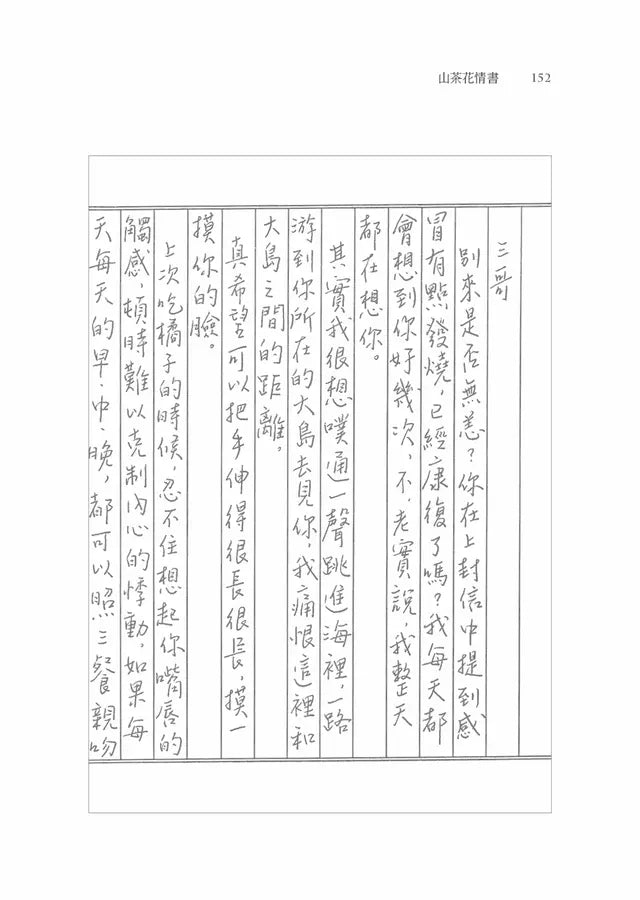 山茶花情書 152
三哥
別來是否無恙？你在上封信中提到感
冒有點發燒，已經康復了嗎？我每天都
會想到你好幾次，不，老實說，我整天
都在想你。
其實我很想噗通一聲跳進海裡，一路
游到你所在的大島去見你，我痛恨這裡和
大島之間的距離。
真希望可以把手伸得很長很長，摸一
摸你的臉。
上次吃橘子的時候，忍不住想起你嘴唇的
觸感，頓時難以克制內心的悸動，如果每
天每天的早、中、晚，都可以照三餐親吻